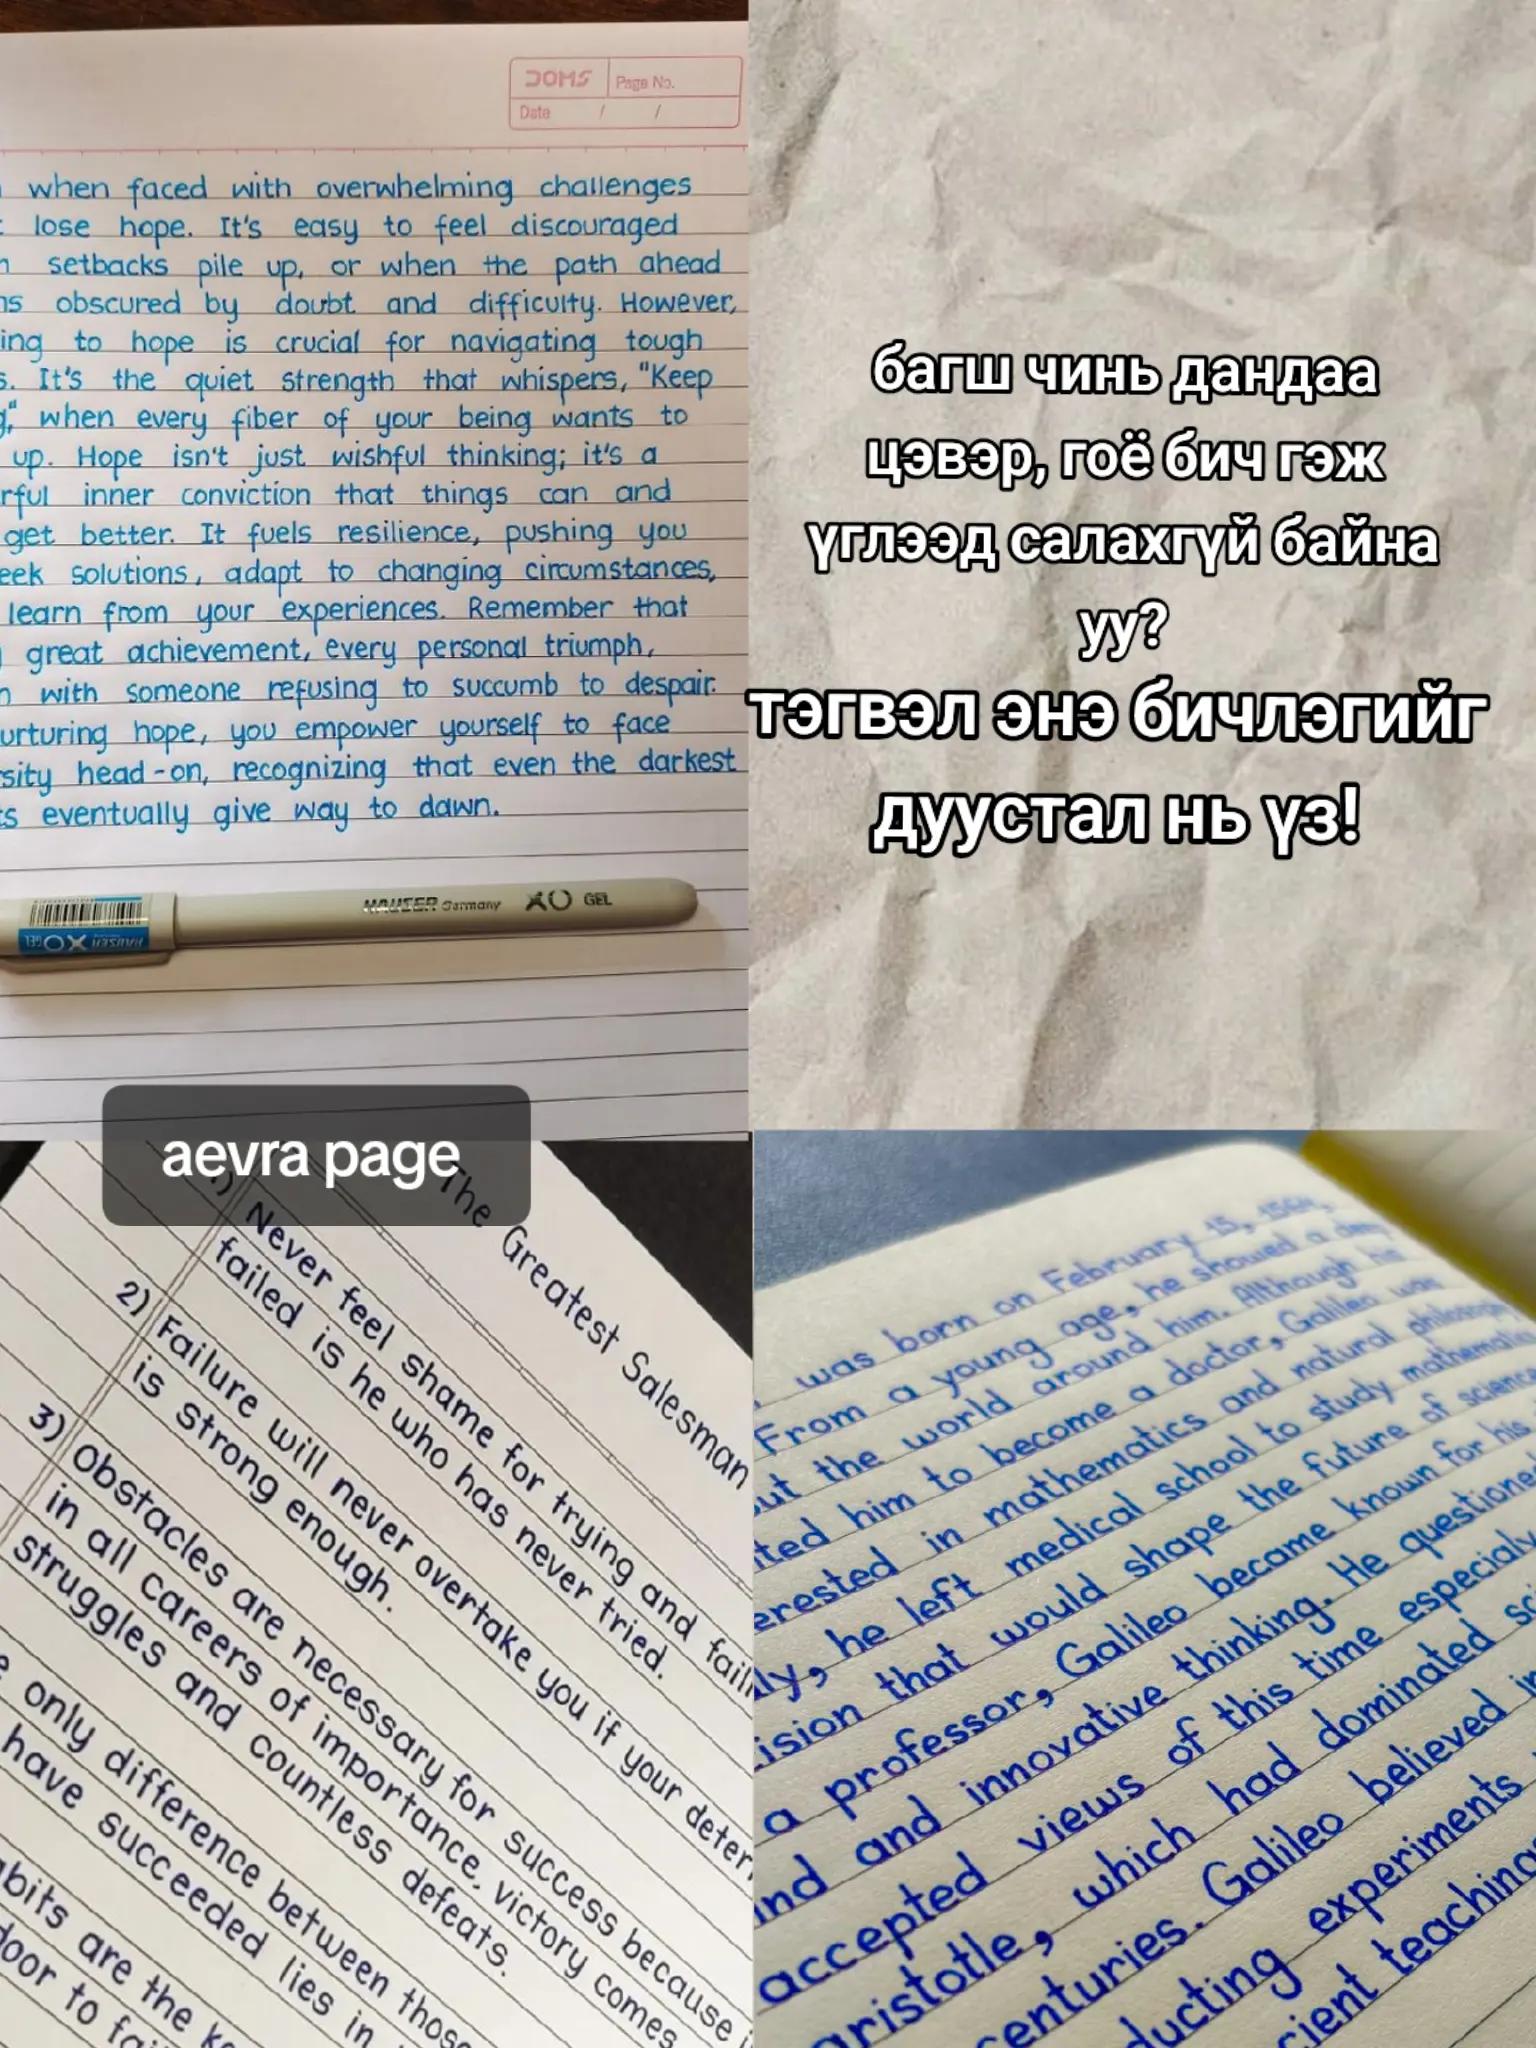 DOMS
Page No.
Date / /
when faced with overwhelming challenges
lose hope. It's easy to feel discouraged
setbacks pile up, or when the path ahead
obscured by doubt and difficulty. However,
to hope is crucial for navigating tough
It's the quiet strength that whispers, "Keep
when every fiber of your being wants to
up. Hope isn't just wishful thinking; it's a
inner conviction that things can and
get better. It fuels resilience, pushing you
solutions, adapt to changing circumstances,
learn from your experiences. Remember that
great achievement, every personal triumph,
with someone refusing to succumb to despair.
hope, you empower yourself to face
head-on, recognizing that even the darkest
eventually give way to dawn.
HAUSER Germany XO GEL
багш чинь дандаа
цэвэр, гоё бич гэж
үглээд салахгүй байна
уу?
тэгвэл энэ бичлэгийг
дуустал нь үз!
aevra page
The Greatest Salesman
1.) Never feel shame for trying and
failed is he who has never tried.
2) Failure will never overtake you if your
is strong enough.
3) Obstacles are necessary for success because
in all careers of importance, victory comes
struggles and countless defeats.
only difference between those
have succeeded lies in
are the
door to
was born on February 15, 1564,
From a young age, he showed a deep
the world around him. Although his
him to become a doctor, Galileo was
in mathematics and natural
he left medical school to study
that would shape the future of science
a professor, Galileo became known for his
and innovative thinking. He questioned
accepted views of this time especialy
which had dominated
centuries. Galileo believed in
experiments